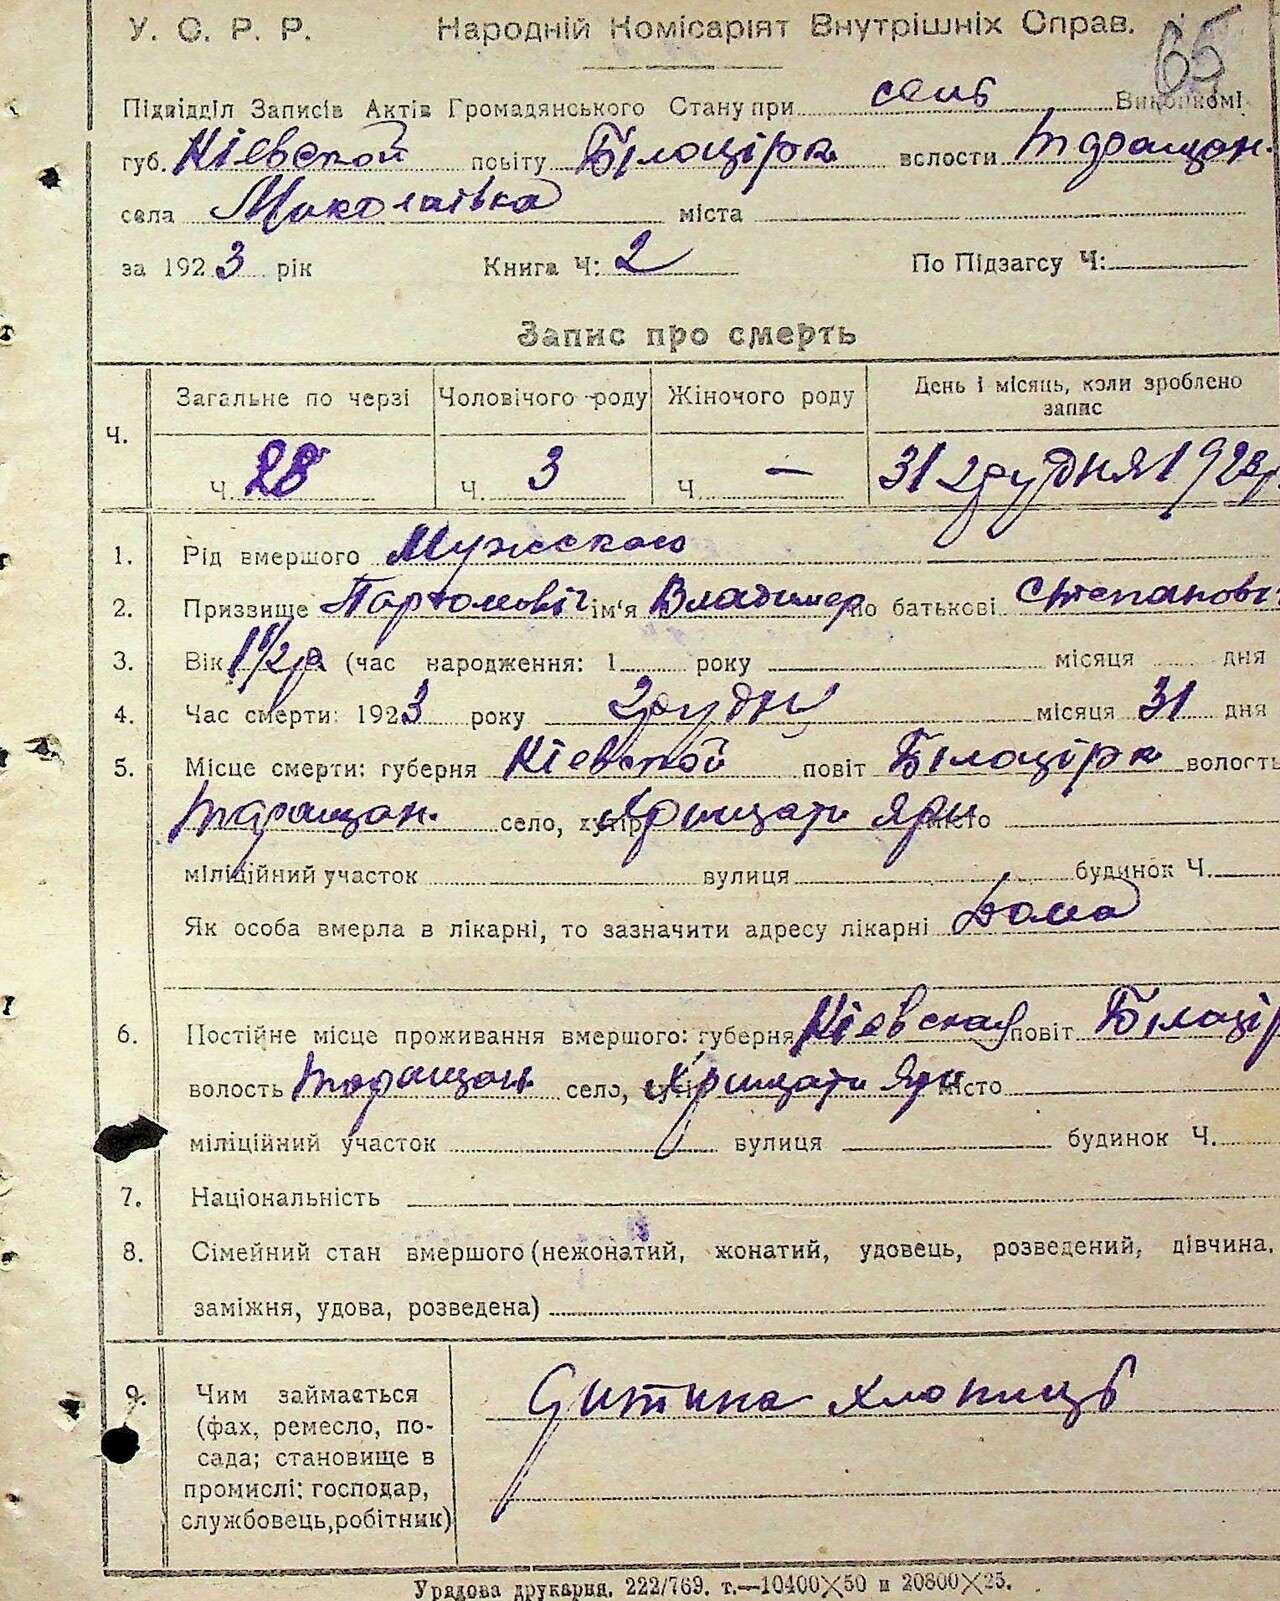 У. С. Р. Р. Народній Комісаріят Внутрішніх Справ.
65
Підвідділ Записів Актів Громадянського Стану при сель Виконкомі
губ. Кіевской повіту Білоцірк волости Таращан.
села Миколаівка міста
за 1923 рік Книга Ч: 2 По Підзагсу Ч:
Запис про смерть
Ч. Загальне по черзі Чоловічого роду Жіночого роду День і місяць, коли зроблено запис
Ч. 28 Ч. 3 Ч. — 31 грудня 1923р.
1. Рід вмершого Мужеского
2. Призвище Партомовіч ім'я Владимер по батькові Степанович
3. Вік 1 1/2 р (час народження: 1 року місяця дня
4. Час смерти: 1923 року грудня місяця 31 дня
5. Місце смерти: губерня Кіевской повіт Білоцірк волость
Таращан. село, хутір Хрищати Яри місто
міліційний участок вулиця будинок Ч.
Як особа вмерла в лікарні, то зазначити адресу лікарні Дома
6. Постійне місце проживання вмершого: губерня Кіевская повіт Білоцір
волость Таращан. село, хутір Хрищати Яри місто
міліційний участок вулиця будинок Ч.
7. Національність
8. Сімейний стан вмершого (нежонатий, жонатий, удовець, розведений, дівчина,
заміжня, удова, розведена)
9. Чим займається
(фах, ремесло, по-
сада; становище в
промислі; господар,
службовець, робітник)
Дитина хлопиць
Урядова друкарня. 222/769. т.—10400X50 и 20800X25.